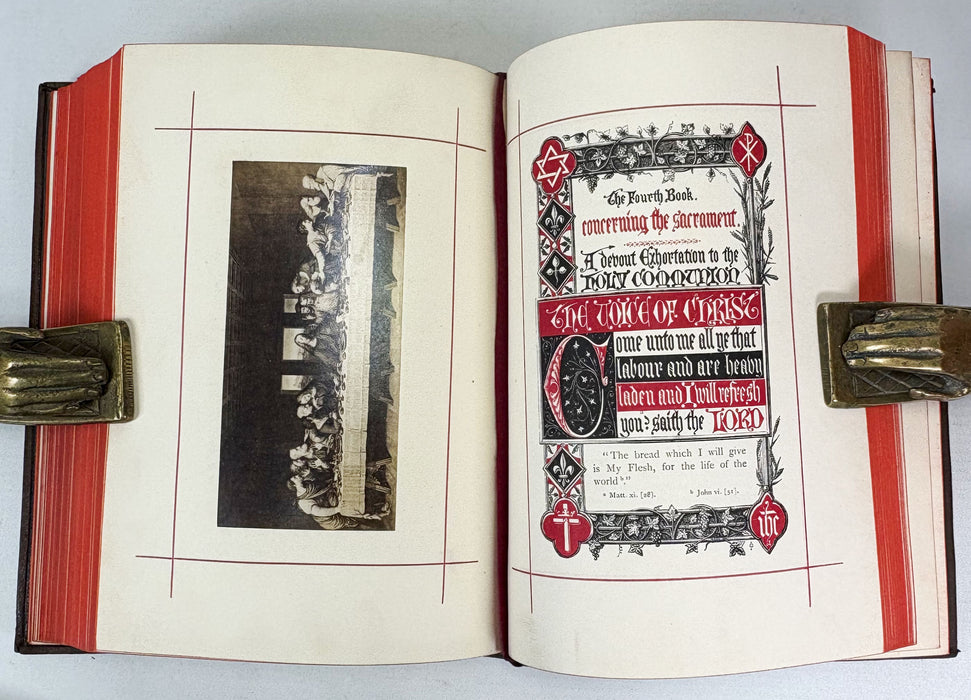 The Fourth Book.
concerning the sacrament.
A devout Exhortation to the
HOLY COMMUNION
THE VOICE OF CHRIST
Come unto me all ye that
labour and are heavy
laden and I will refresh
you: saith the LORD
"The bread which I will give
is My Flesh, for the life of the
world ᵇ."
ᵃ Matt. xi. [28]. ᵇ John vi. [51].
ihc